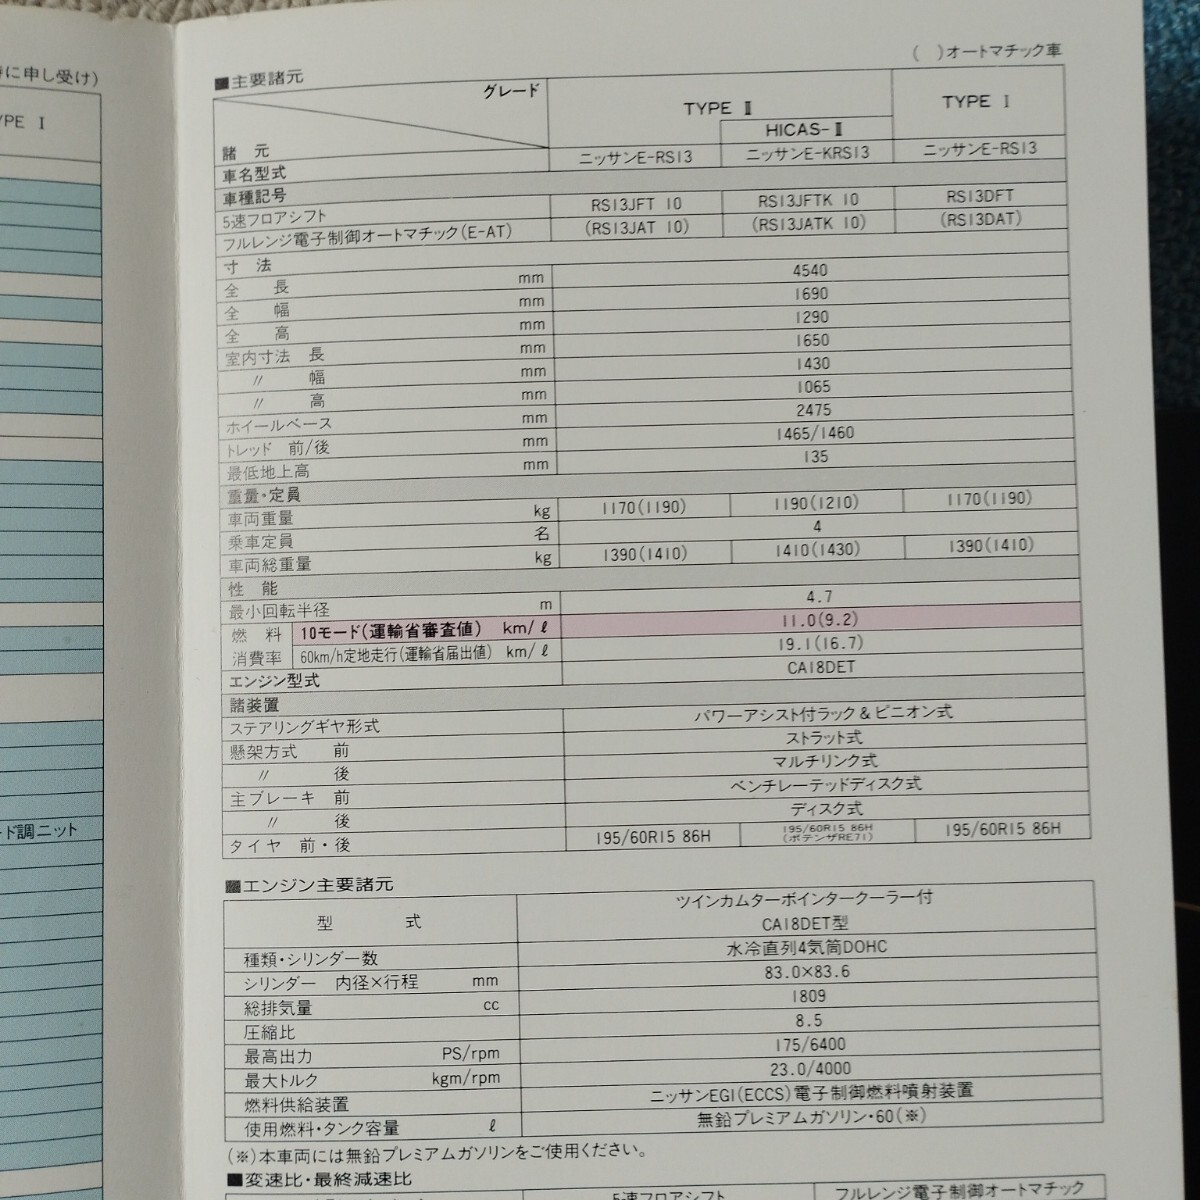 時に申し受け)
YPE Ⅰ
ード調ニット
( )オートマチック車
■主要諸元
グレード
諸 元
TYPE Ⅱ
HICAS-Ⅱ
TYPE Ⅰ
車名型式 ニッサンE-RS13 ニッサンE-KRS13 ニッサンE-RS13
車種記号
5速フロアシフト RS13JFT 10 RS13JFTK 10 RS13DFT
フルレンジ電子制御オートマチック(E-AT) (RS13JAT 10) (RS13JATK 10) (RS13DAT)
寸 法
全 長 mm 4540
全 幅 mm 1690
全 高 mm 1290
室内寸法 長 mm 1650
〃 幅 mm 1430
〃 高 mm 1065
ホイールベース mm 2475
トレッド 前/後 mm 1465/1460
最低地上高 mm 135
重量・定員
車両重量 kg 1170(1190) 1190(1210) 1170(1190)
乗車定員 名 4
車両総重量 kg 1390(1410) 1410(1430) 1390(1410)
性 能
最小回転半径 m 4.7
燃 料 10モード(運輸省審査値) km/ℓ 11.0(9.2)
消費率 60km/h定地走行(運輸省届出値) km/ℓ 19.1(16.7)
エンジン型式 CA18DET
諸装置
ステアリングギヤ形式 パワーアシスト付ラック&ピニオン式
懸架方式 前 ストラット式
〃 後 マルチリンク式
主ブレーキ 前 ベンチレーテッドディスク式
〃 後 ディスク式
タイヤ 前・後 195/60R15 86H 195/60R15 86H (ポテンザRE71) 195/60R15 86H
■エンジン主要諸元
型 式 ツインカムターボインタークーラー付
CA18DET型
種類・シリンダー数 水冷直列4気筒DOHC
シリンダー 内径×行程 mm 83.0×83.6
総排気量 cc 1809
圧縮比 8.5
最高出力 PS/rpm 175/6400
最大トルク kgm/rpm 23.0/4000
燃料供給装置 ニッサンEGI(ECCS)電子制御燃料噴射装置
使用燃料・タンク容量 ℓ 無鉛プレミアムガソリン・60(※)
(※)本車両には無鉛プレミアムガソリンをご使用ください。
■変速比・最終減速比
5速フロアシフト フルレンジ電子制御オートマチック